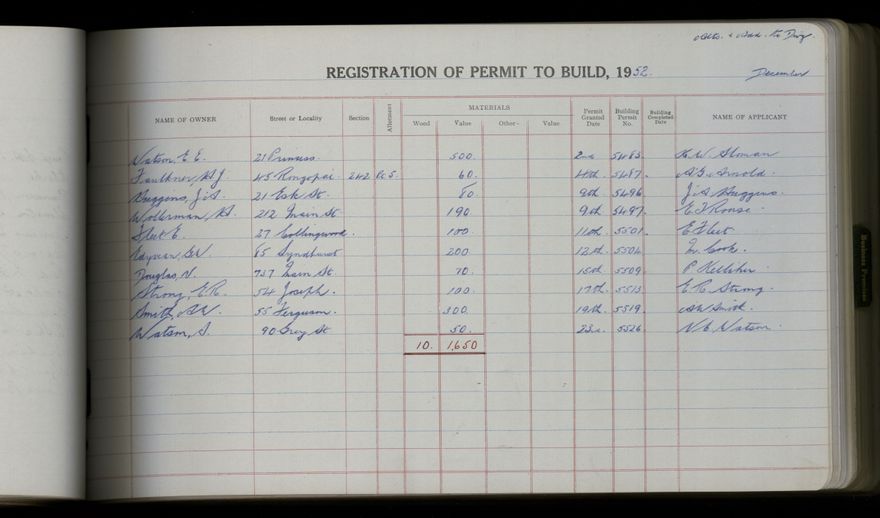 Alts. & Add. to Dwg.
REGISTRATION OF PERMIT TO BUILD, 1952.
December
NAME OF OWNER Street or Locality Section Allotment MATERIALS Permit Granted Date Building Permit No. Building Completed Date NAME OF APPLICANT
Wood Value Other Value
Watson, E E. 21 Princess 500. 2nd 5483. Sloman
Faulkner, 45 Rongopai 242 5. 60. 4th. 5487. Arnold.
Huggins, J A. 21 Esk St. 80. 9th. 5496. J A Huggins.
212 Main St. 190 9th. 5497. Rouse.
Fleet E. 27 Collingwood. 100 11th. 5501. E Fleet
65 Lyndhurst 200 12th. 5504. Cook.
Douglas, N. 737 Main St. 70. 15th. 5509. P Kelliher
Strong, E R. 54 Joseph. 100. 17th. 5513 E R Strong.
Smith, A W. 55 Ferguson. 300. 19th. 5519. A W Smith.
Watson, S. 90 Grey St 50. 23rd. 5526 Watson
10. 1,650
Business Premises